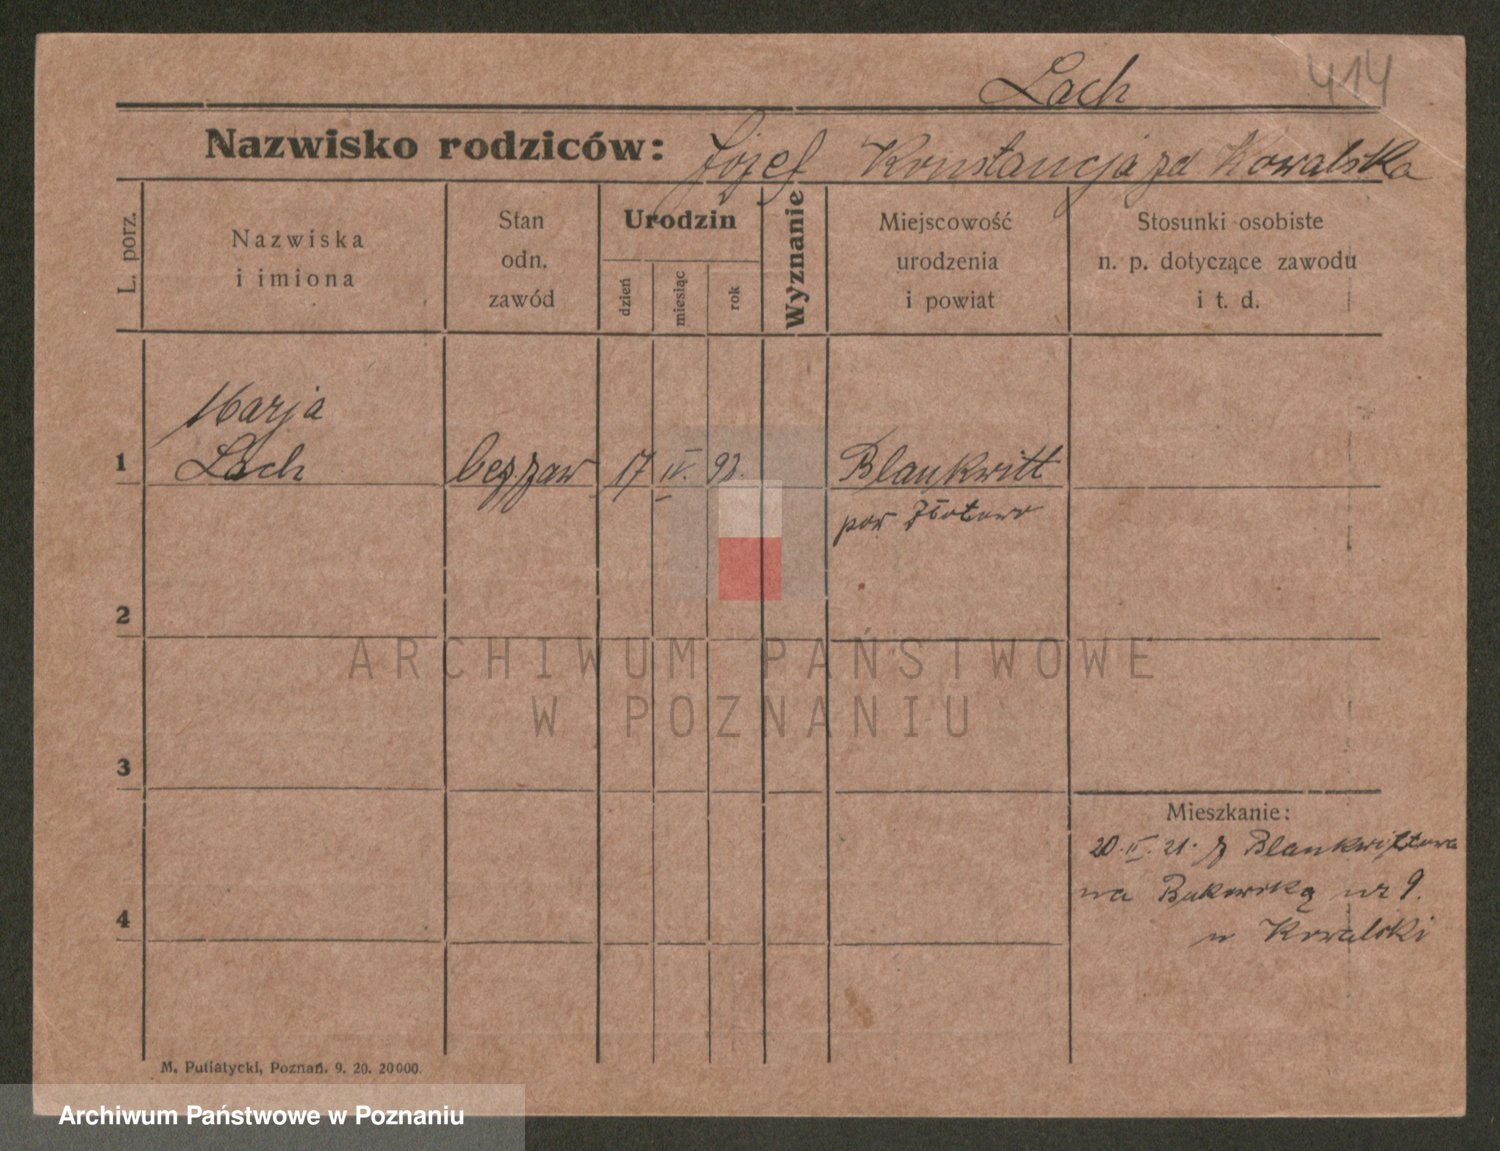 Lach 414
Nazwisko rodziców: Józef Konstancja zd Kowalska
L. porz.
Nazwiska
i imiona
Stan
odn.
zawód
Urodzin
dzień
miesiąc
rok
Wyznanie
Miejscowość
urodzenia
i powiat
Stosunki osobiste
n. p. dotyczące zawodu
i t. d.
Marja
1 Lach bez zaw 17 IV. 92. Blankwitt
pow Złotowo
2
ARCHIWUM PAŃSTWOWE
W POZNANIU
3
Mieszkanie:
20.II.21. z Blankwittowa
na Bukowską nr 9.
u Kowalski
4
M. Putiatycki, Poznań. 9. 20. 20000.
Archiwum Państwowe w Poznaniu